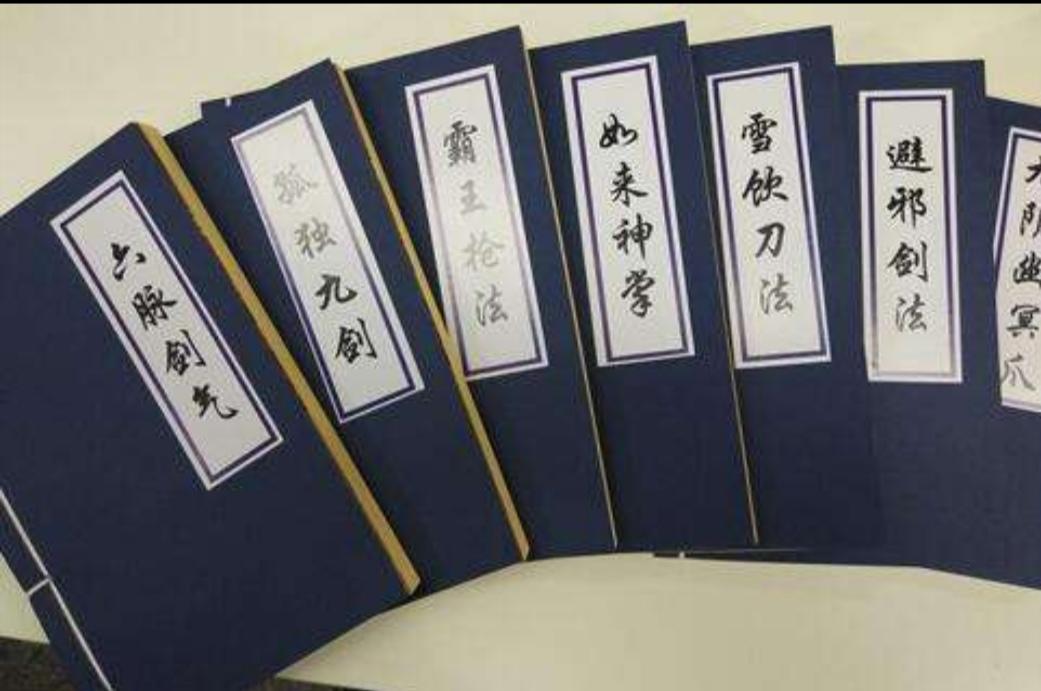 六脉剑气
孤独九剑
霸王枪法
如来神掌
雪饮刀法
避邪剑法
九阴幽冥爪